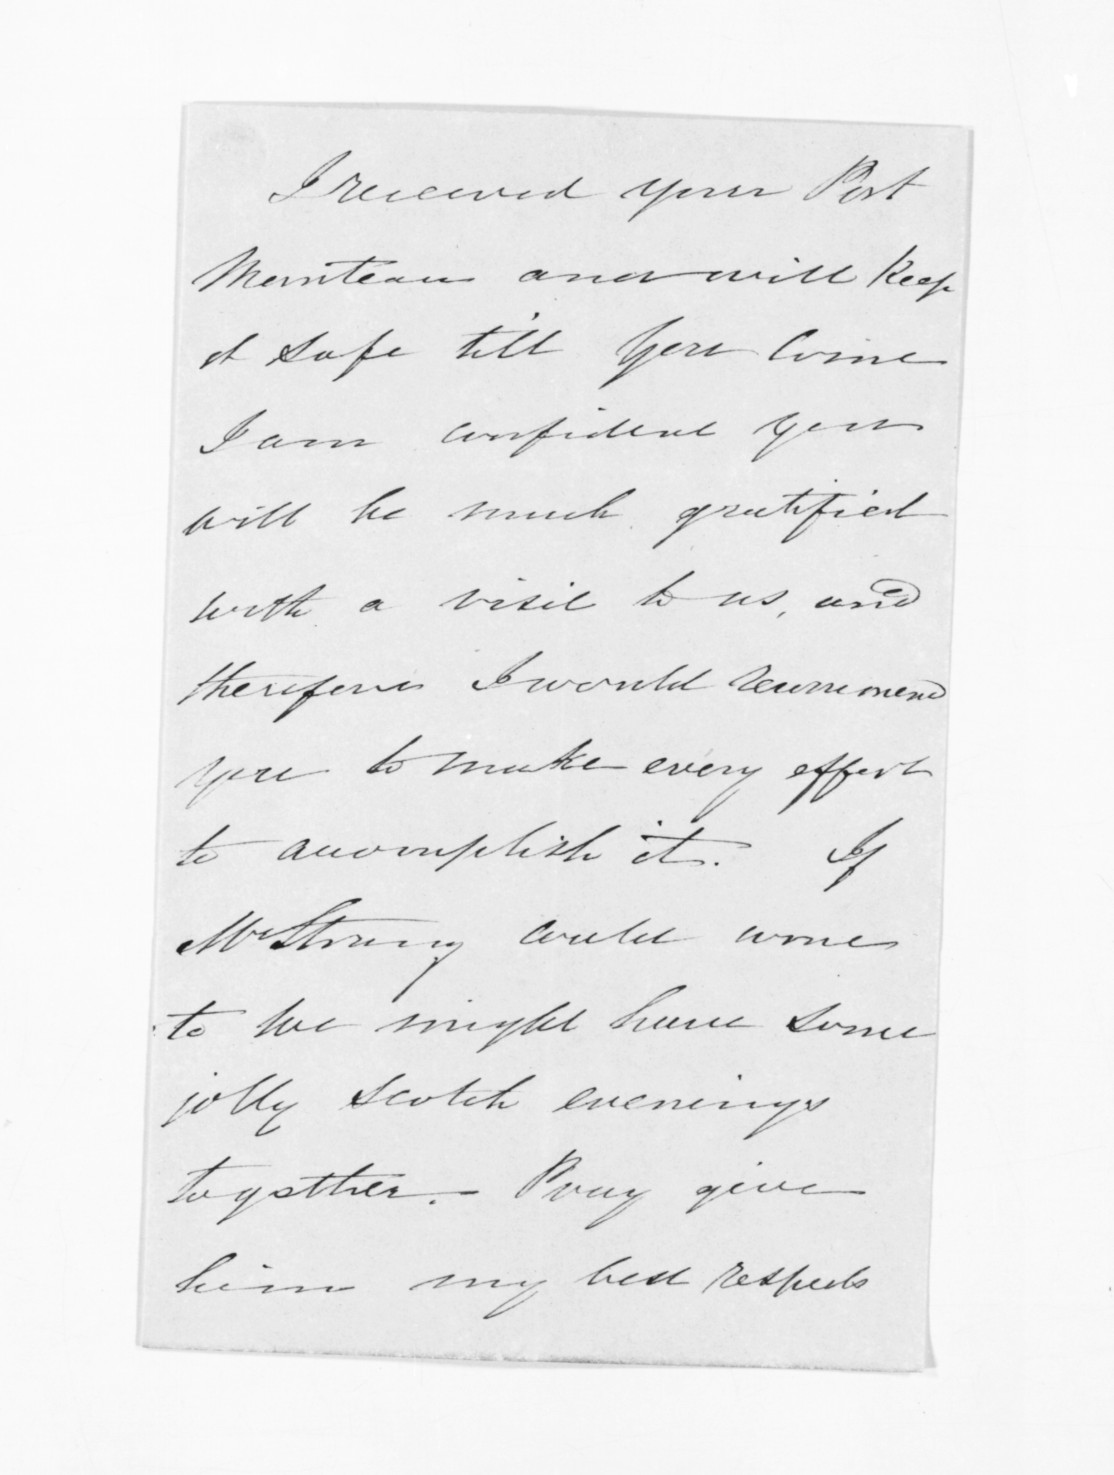 I received your Port
Manteau and will keep
it safe till you come
I am confident you
will be much gratified
with a visit to us, and
therefore I would recommend
you to make every effort
to accomplish it. If
Mr Strang could come
to we might have some
jolly Scotch evenings
together. - Pray give
him my best respects